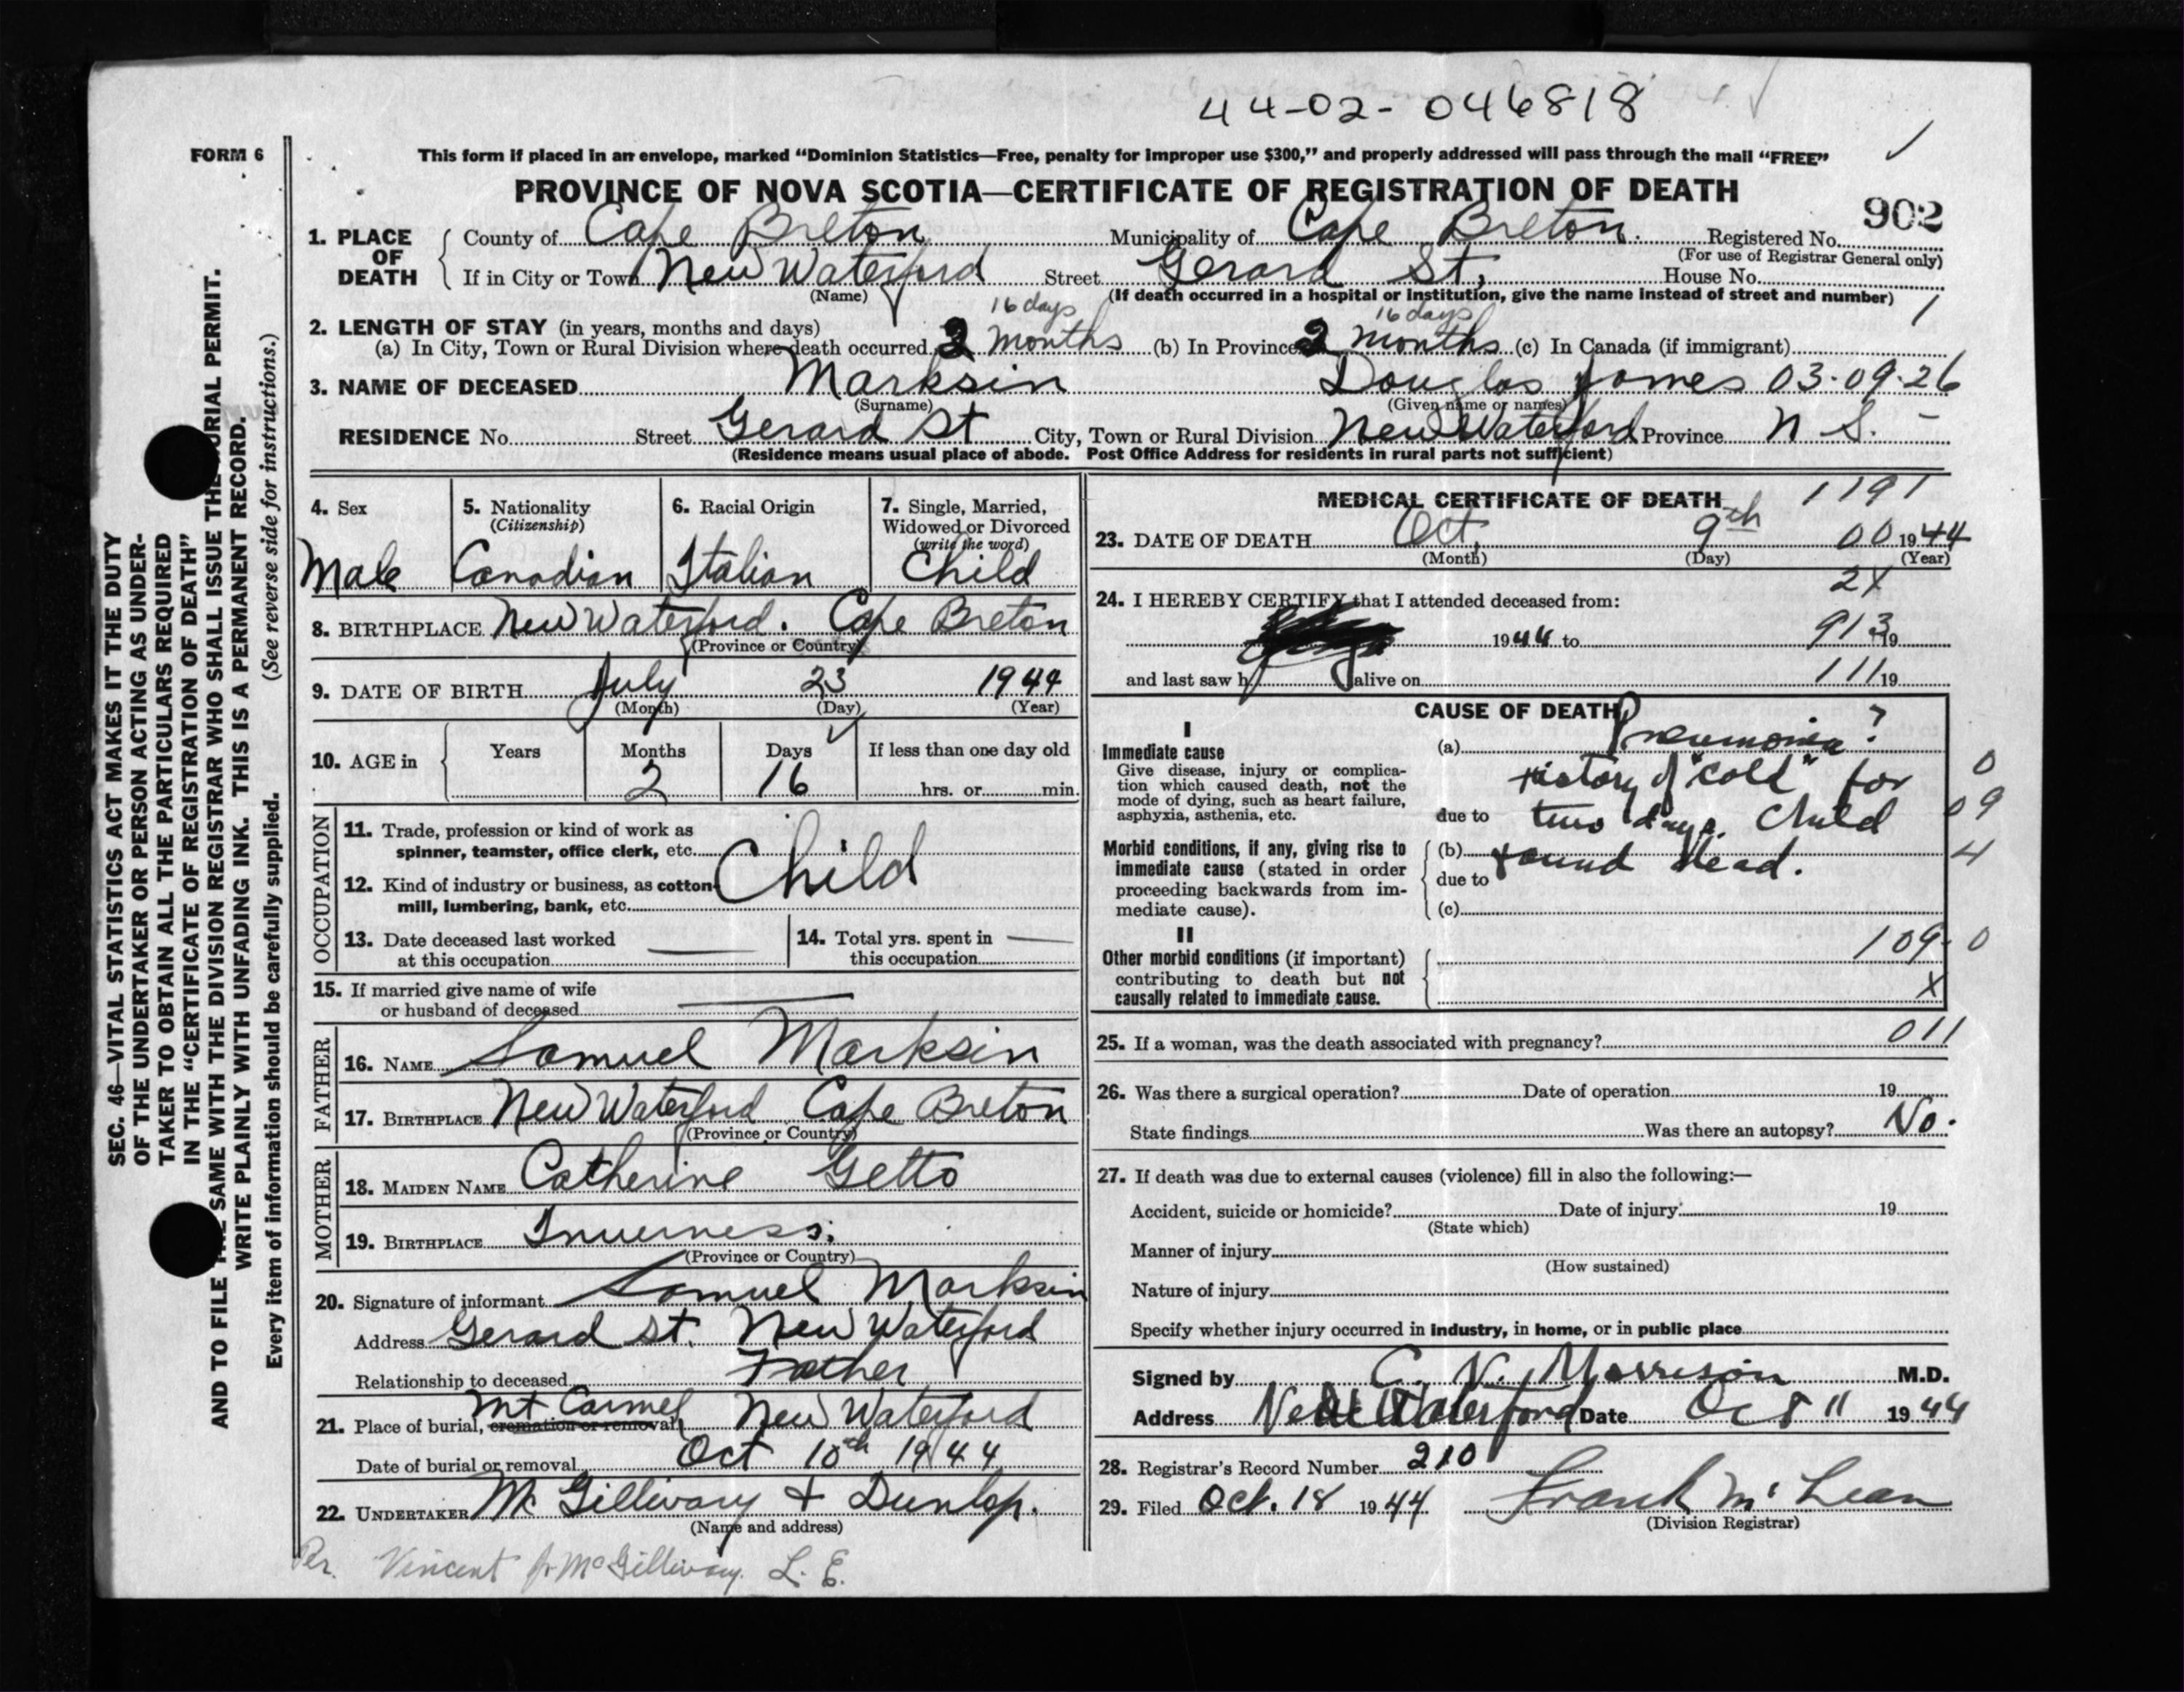 44-02-046818
FORM 6
This form if placed in an envelope, marked “Dominion Statistics—Free, penalty for improper use $300,” and properly addressed will pass through the mail “FREE”
PROVINCE OF NOVA SCOTIA—CERTIFICATE OF REGISTRATION OF DEATH
902
1. PLACE OF DEATH
County of Cape Breton Municipality of Cape Breton. Registered No.
(For use of Registrar General only)
If in City or Town New Waterford Street Gerard St, House No.
(Name) (If death occurred in a hospital or institution, give the name instead of street and number) 1
2. LENGTH OF STAY (in years, months and days) 16 days 16 days
(a) In City, Town or Rural Division where death occurred 2 months (b) In Province 2 months (c) In Canada (if immigrant)
3. NAME OF DECEASED Marksin Douglas James 03-09-26
(Surname) (Given name or names)
RESIDENCE No. Street Gerard St City, Town or Rural Division New Waterford Province N S. -
(Residence means usual place of abode. Post Office Address for residents in rural parts not sufficient)
4. Sex
Male
5. Nationality
(Citizenship)
Canadian
6. Racial Origin
Italian
7. Single, Married,
Widowed or Divorced
(write the word)
Child
8. BIRTHPLACE New Waterford. Cape Breton
(Province or Country)
9. DATE OF BIRTH July 23 1944
(Month) (Day) (Year)
10. AGE in
Years Months Days If less than one day old
2 16 hrs. or min.
OCCUPATION
11. Trade, profession or kind of work as
spinner, teamster, office clerk, etc.
Child
12. Kind of industry or business, as cotton-
mill, lumbering, bank, etc.
13. Date deceased last worked
at this occupation
14. Total yrs. spent in
this occupation
15. If married give name of wife
or husband of deceased
FATHER
16. NAME Samuel Marksin
17. BIRTHPLACE New Waterford Cape Breton
(Province or Country)
MOTHER
18. MAIDEN NAME Catherine Getto
19. BIRTHPLACE Inverness.
(Province or Country)
20. Signature of informant Samuel Marksin
Address Gerard St. New Waterford
Relationship to deceased Father
21. Place of burial, cremation or removal Mt Carmel New Waterford
Date of burial or removal Oct 10th 1944
22. UNDERTAKER McGillivary & Dunlop.
(Name and address)
Per. Vincent McGillivary. L. E.
MEDICAL CERTIFICATE OF DEATH 1191
23. DATE OF DEATH Oct. 9th 00 1944
(Month) (Day) (Year)
2X
24. I HEREBY CERTIFY that I attended deceased from:
1944 to 913 19
and last saw h alive on 111 19
CAUSE OF DEATH
I
Immediate cause
Give disease, injury or complica-
tion which caused death, not the
mode of dying, such as heart failure,
asphyxia, asthenia, etc.
(a) Pneumonia?
History of "cold" for 0
due to two days. Child 09
Morbid conditions, if any, giving rise to
immediate cause (stated in order
proceeding backwards from im-
mediate cause).
(b) found dead. 4
due to
(c)
II
Other morbid conditions (if important)
contributing to death but not
causally related to immediate cause.
109-0
X
25. If a woman, was the death associated with pregnancy? 011
26. Was there a surgical operation? Date of operation 19
State findings Was there an autopsy? No.
27. If death was due to external causes (violence) fill in also the following:—
Accident, suicide or homicide? Date of injury 19
(State which)
Manner of injury
(How sustained)
Nature of injury
Specify whether injury occurred in industry, in home, or in public place
Signed by C. N. Morrison M.D.
Address New Waterford Date Oct 11 1944
28. Registrar's Record Number 210
29. Filed Oct. 18 1944 Frank McLean
(Division Registrar)
SEC. 46—VITAL STATISTICS ACT MAKES IT THE DUTY
OF THE UNDERTAKER OR PERSON ACTING AS UNDER-
TAKER TO OBTAIN ALL THE PARTICULARS REQUIRED
IN THE “CERTIFICATE OF REGISTRATION OF DEATH”
AND TO FILE THE SAME WITH THE DIVISION REGISTRAR WHO SHALL ISSUE THE BURIAL PERMIT.
WRITE PLAINLY WITH UNFADING INK. THIS IS A PERMANENT RECORD.
Every item of information should be carefully supplied. (See reverse side for instructions.)